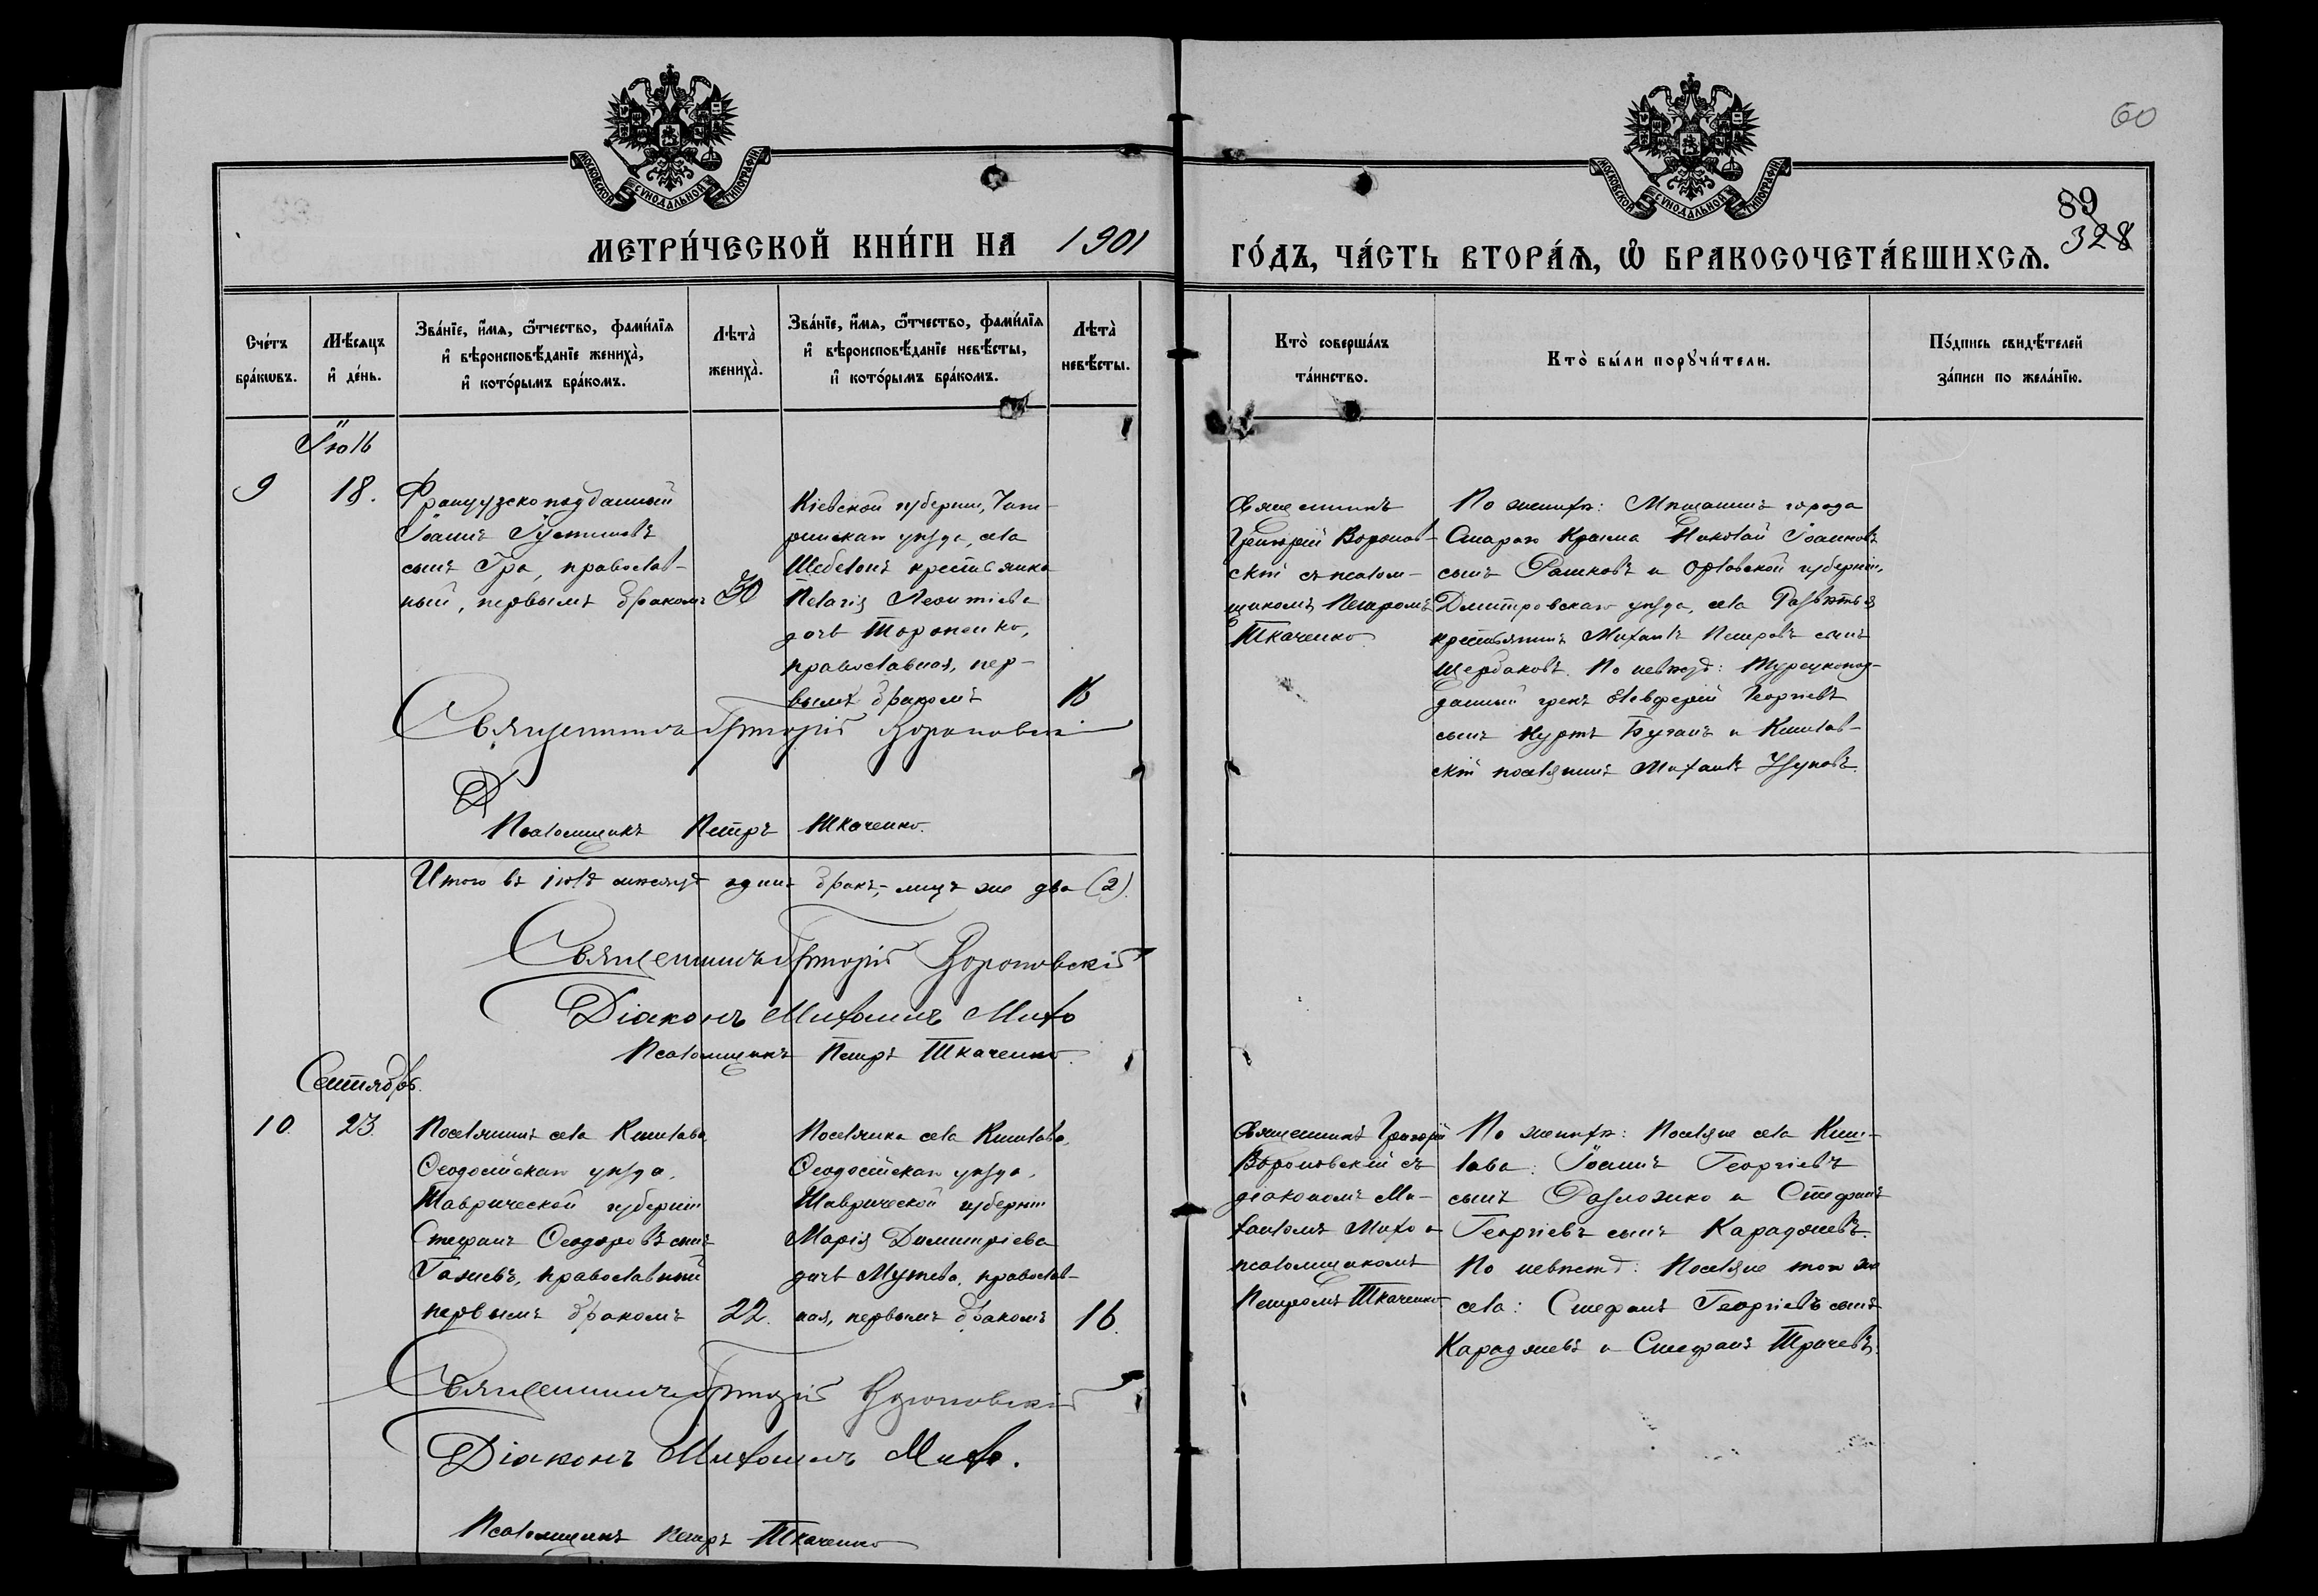 60
89
328
МОСКОВСКОЙ СѴНОДАЛЬНОЙ ТИПОГРАФІИ
МОСКОВСКОЙ СѴНОДАЛЬНОЙ ТИПОГРАФІИ
МЕТРИ́ЧЕСКОЙ КНИ́ГИ НА 1901
ГО́ДЪ, ЧА́СТЬ ВТОРА́Ѧ, Ѽ БРАКОСОЧЕТА́ВШИХСѦ.
Сче́тъ
бра́кѡвъ.
Мѣ́сяцъ
и҆ де́нь.
Зва́нїе, и҆́мѧ, ѻ҆́тчество, фами́лїѧ
и҆ вѣроисповѣ́данїе жениха̀,
и҆ кото́рымъ бра́комъ.
Лѣта̀
жениха̀.
Зва́нїе, и҆́мѧ, ѻ҆́тчество, фами́лїѧ
и҆ вѣроисповѣ́данїе невѣ́сты,
и҆ кото́рымъ бра́комъ.
Лѣта̀
невѣ́сты.
Кто̀ соверша́лъ
та́инство.
Кто̀ бы́ли порꙋчи́тели.
По́дпись свидѣ́телей
за́писи по жела́нїю.
Іюль
9
18.
Французскоподданный
Іоаннъ Іустиновъ
сынъ Гра, православ-
ный, первымъ бракомъ
30
Кіевской губерніи, Чиги-
ринскаго уѣзда, села
крестьянка
Пелагія Леонтіева
дочь Тороненко,
православная, пер-
вымъ бракомъ
16
Священникъ
Григорій Воронов-
скій съ псалом-
щикомъ Петромъ
Ткаченко
По женихѣ: Мѣщанинъ города
Стараго Крыма Николай Іоанновъ
сынъ Рашковъ и Орловской губерніи,
Дмитровскаго уѣзда, села
крестьянинъ Михаилъ Петровъ сынъ
Щербаковъ. По невѣстѣ: Турецкопод-
данный грекъ Елевферій Георгіевъ
сынъ и Кишлав-
скій поселянинъ Михаилъ Узуновъ.
Священникъ Григорій Вороновскій
Псаломщикъ Петръ Ткаченко.
Итого въ іюлѣ мѣсяцѣ одинъ бракъ, - лицъ же два (2).
Священникъ Григорій Вороновскій
Діаконъ Михаилъ Михо
Псаломщикъ Петръ Ткаченко.
Сентябрь.
10.
23.
Поселянинъ села Кишлава,
Ѳеодосійскаго уѣзда,
Таврической губерніи
Стефанъ Ѳеодоровъ сынъ
Гажевъ, православный
первымъ бракомъ
22.
Поселянка села Кишлава,
Ѳеодосійскаго уѣзда,
Таврической губерніи
Марія Димитріева
дочь Мутева, православ-
ная, первымъ бракомъ
16.
Священникъ Григорій
Вороновскій съ
діакономъ Ми-
хаиломъ Михо и
псаломщикомъ
Петромъ Ткаченко
По женихѣ: Поселяне села Киш-
лава: Іоаннъ Георгіевъ
сынъ и Стефанъ
Георгіевъ сынъ Караджевъ.
По невѣстѣ: Поселяне того же
села: Стефанъ Георгіевъ сынъ
Караджевъ и Стефанъ Трачевъ.
Священникъ Григорій Вороновскій
Діаконъ Михаилъ Михо.
Псаломщикъ Петръ Ткаченко